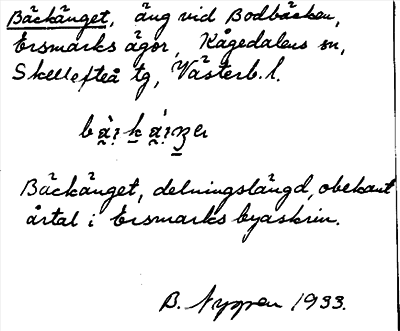 Bäckänget, äng vid Bodbäcken,
Ersmarks ägor, Kågedalens sn,
Skellefteå tg, Västerb. l.
Bäckänget, delningslängd, obekant
årtal i Ersmarks byaskrin.
B. Nygren 1933.